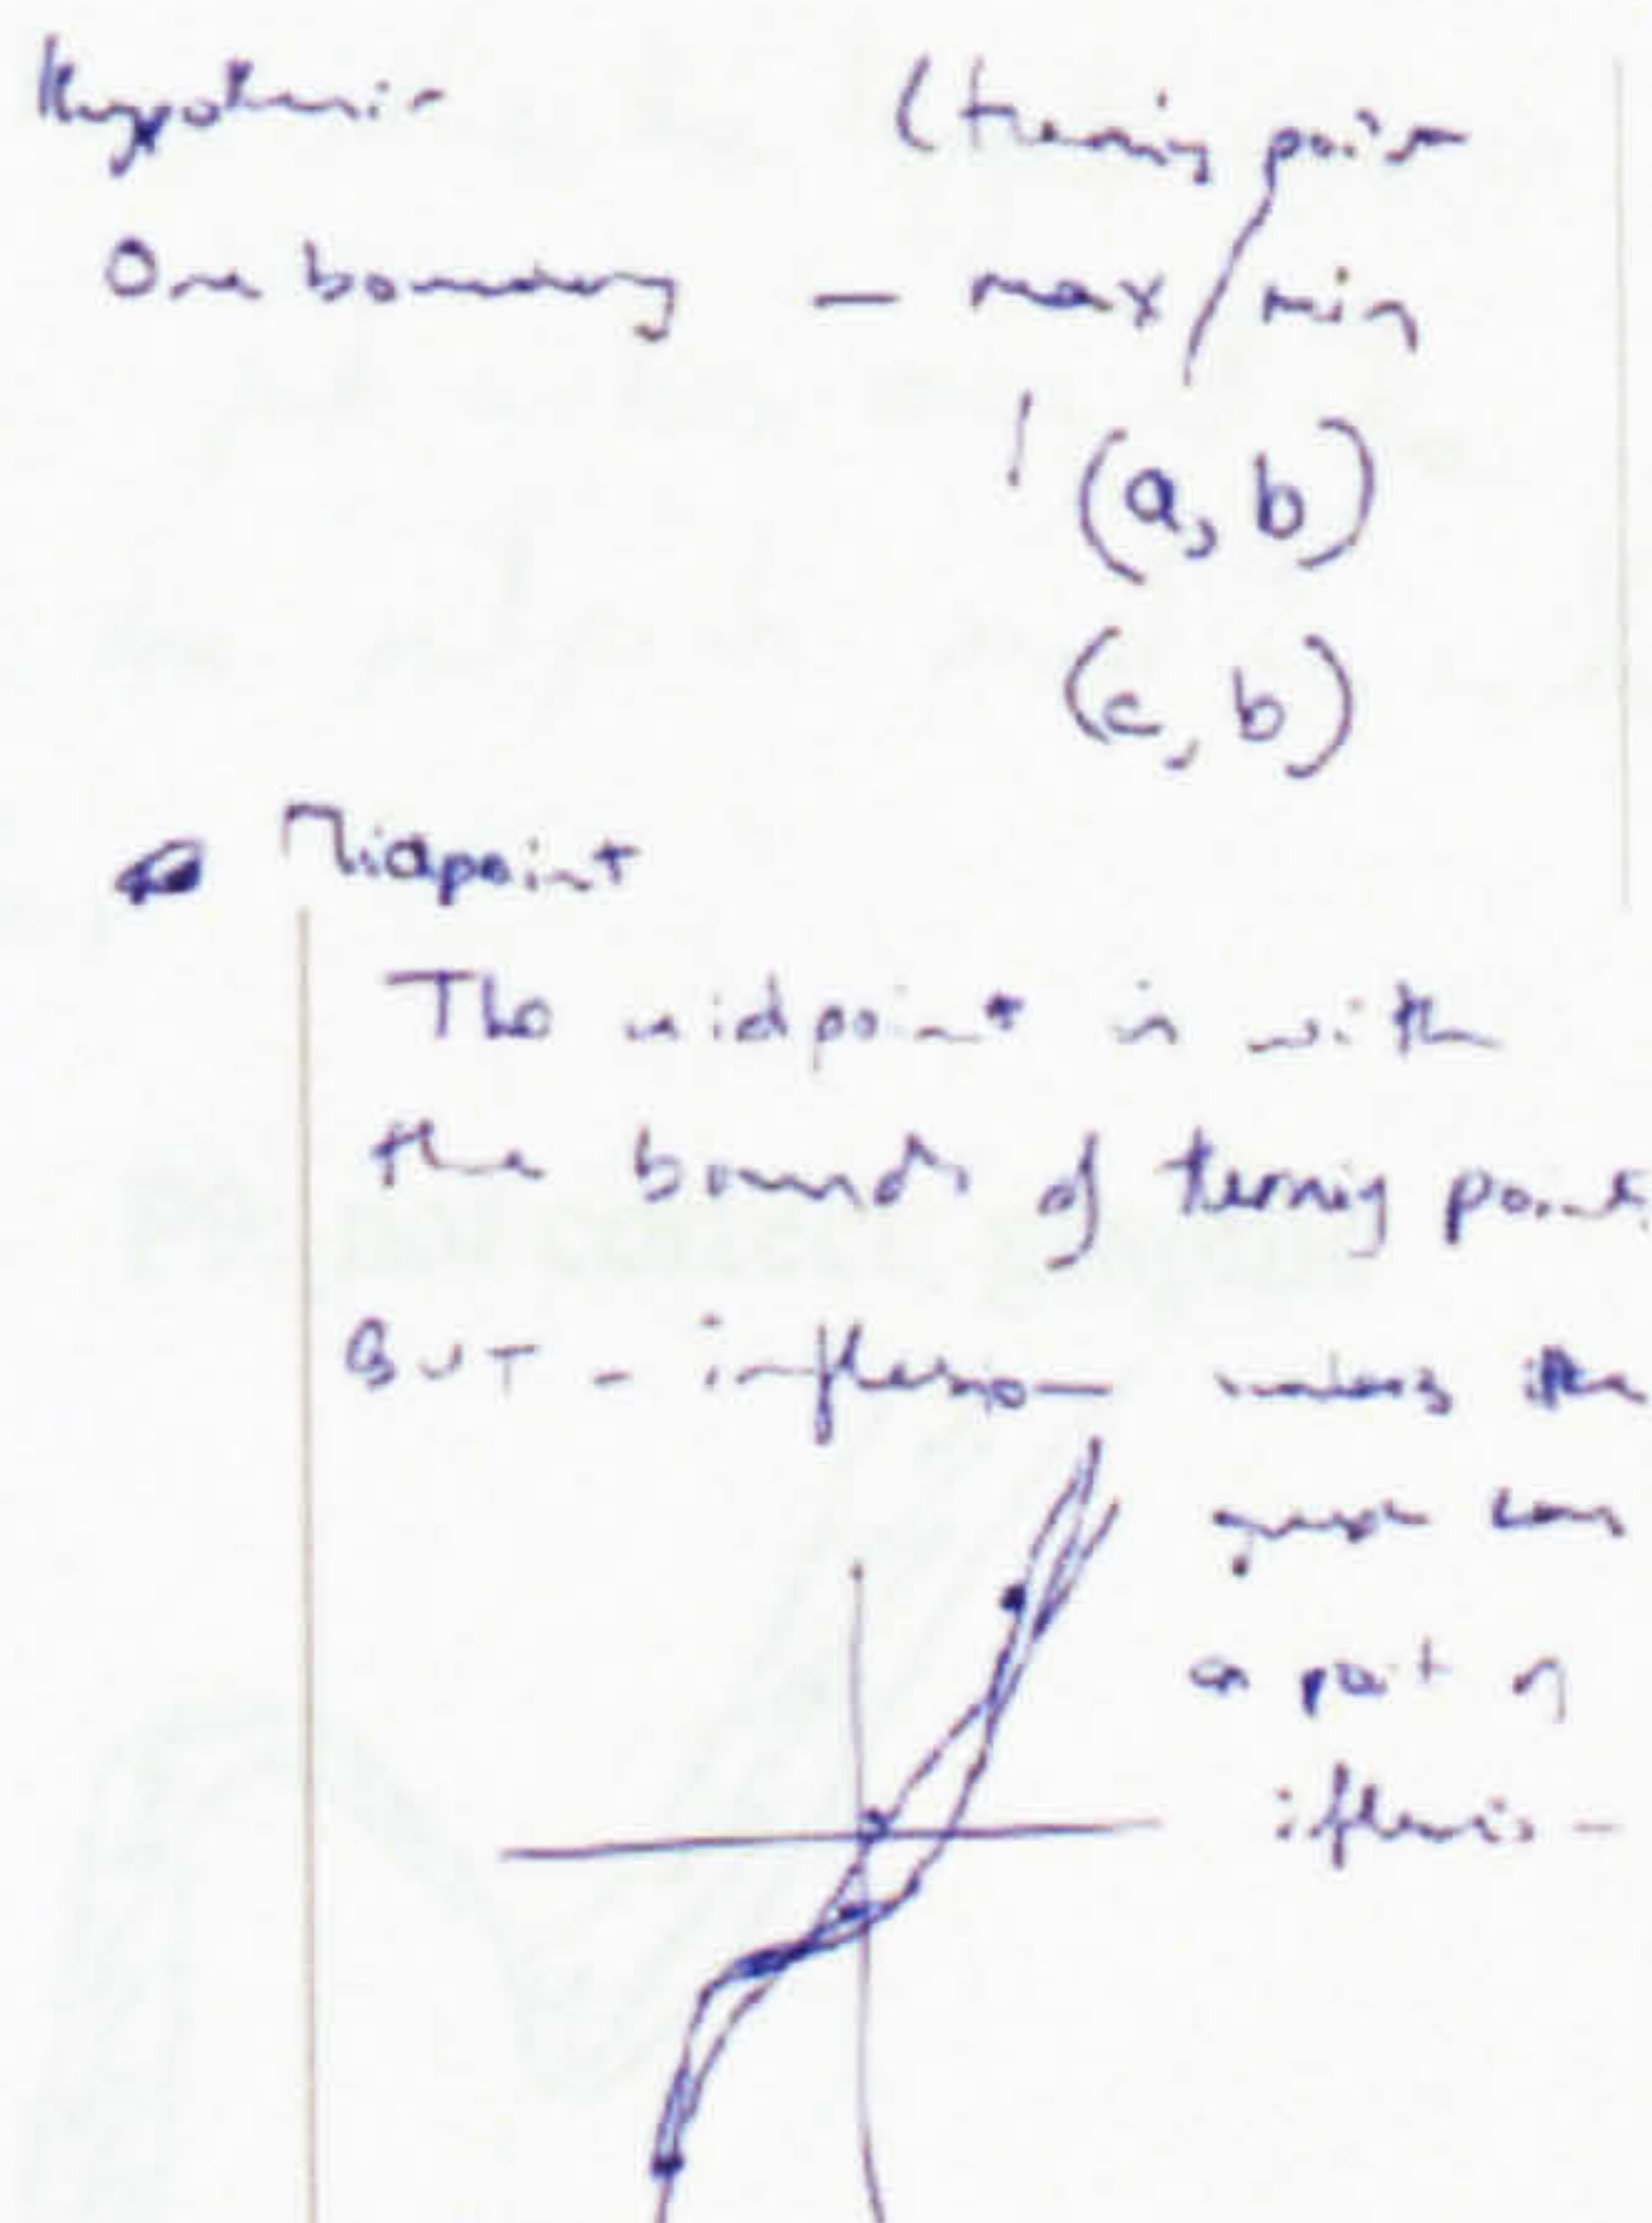 Hypothesis (turning point
One boundary — max/min
(a, b)
(c, b)
Midpoint
The midpoint is with
the bounds of turning points
BUT - inflexion unless the
graph has
a point of
inflexion